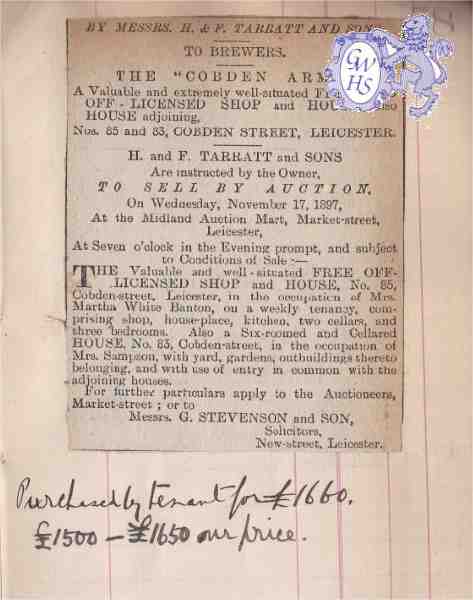 BY MESSRS. H. & F. TARRATT AND SONS
TO BREWERS.
THE "COBDEN ARM
A Valuable and extremely well-situated FREE
OFF-LICENSED SHOP and HOUSE, also
HOUSE adjoining,
Nos. 85 and 83, COBDEN STREET, LEICESTER.
H. and F. TARRATT and SONS
Are instructed by the Owner,
TO SELL BY AUCTION,
On Wednesday, November 17, 1897,
At the Midland Auction Mart, Market-street,
Leicester,
At Seven o'clock in the Evening prompt, and subject
to Conditions of Sale :—
THE Valuable and well-situated FREE OFF-
LICENSED SHOP and HOUSE, No. 85,
Cobden-street, Leicester, in the occupation of Mrs.
Martha White Banton, on a weekly tenancy, com-
prising shop, house-place, kitchen, two cellars, and
three bedrooms. Also a Six-roomed and Cellared
HOUSE, No. 83, Cobden-street, in the occupation of
Mrs. Sampson, with yard, gardens, outbuildings thereto
belonging, and with use of entry in common with the
adjoining houses.
For further particulars apply to the Auctioneers,
Market-street ; or to
Messrs. G. STEVENSON and SON,
Solicitors,
New-street, Leicester.
GWHS
Purchased by tenant for £1660.
£1500 – £1650 our price.